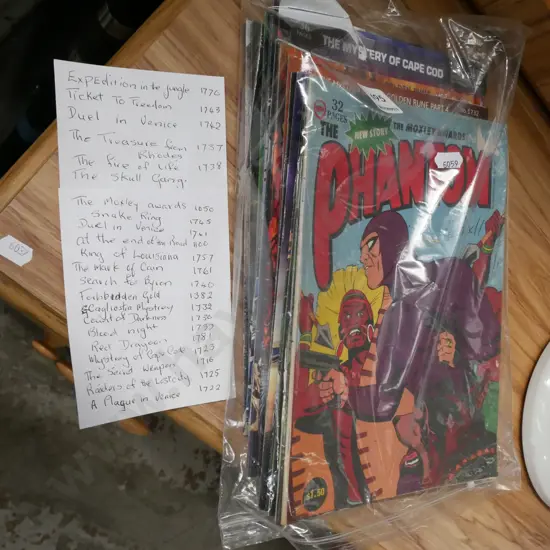 Expedition in the jungle 1770
Ticket To Freedom 1763
Duel in Venice 1762
The Treasure from 1737
Rhodes
The Fire of Life 1738
The Skull Gang
The Moxley awards 1050
Snake King 1765
Duel in Venice 1761
at the end of the Road 1100
King of Louisiana 1757
The Mark of Cain 1761
Search for Byron 1740
Forbidden Gold 1382
Cagliostro Mystery 1732
Count of Darkness 1730
Blood night 1752
Red Dragoon 1781
Mystery of Cape Cod 1723
The Secret Weapon 1716
Raiders of the Lost City 1725
A Plague in Venice 1722
THE MYSTERY OF CAPE COD
GOLDEN RUNE PART
32
PAGES
NEW STORY
THE MOXLEY AWARDS
THE
PHANTOM
6059
$1.50